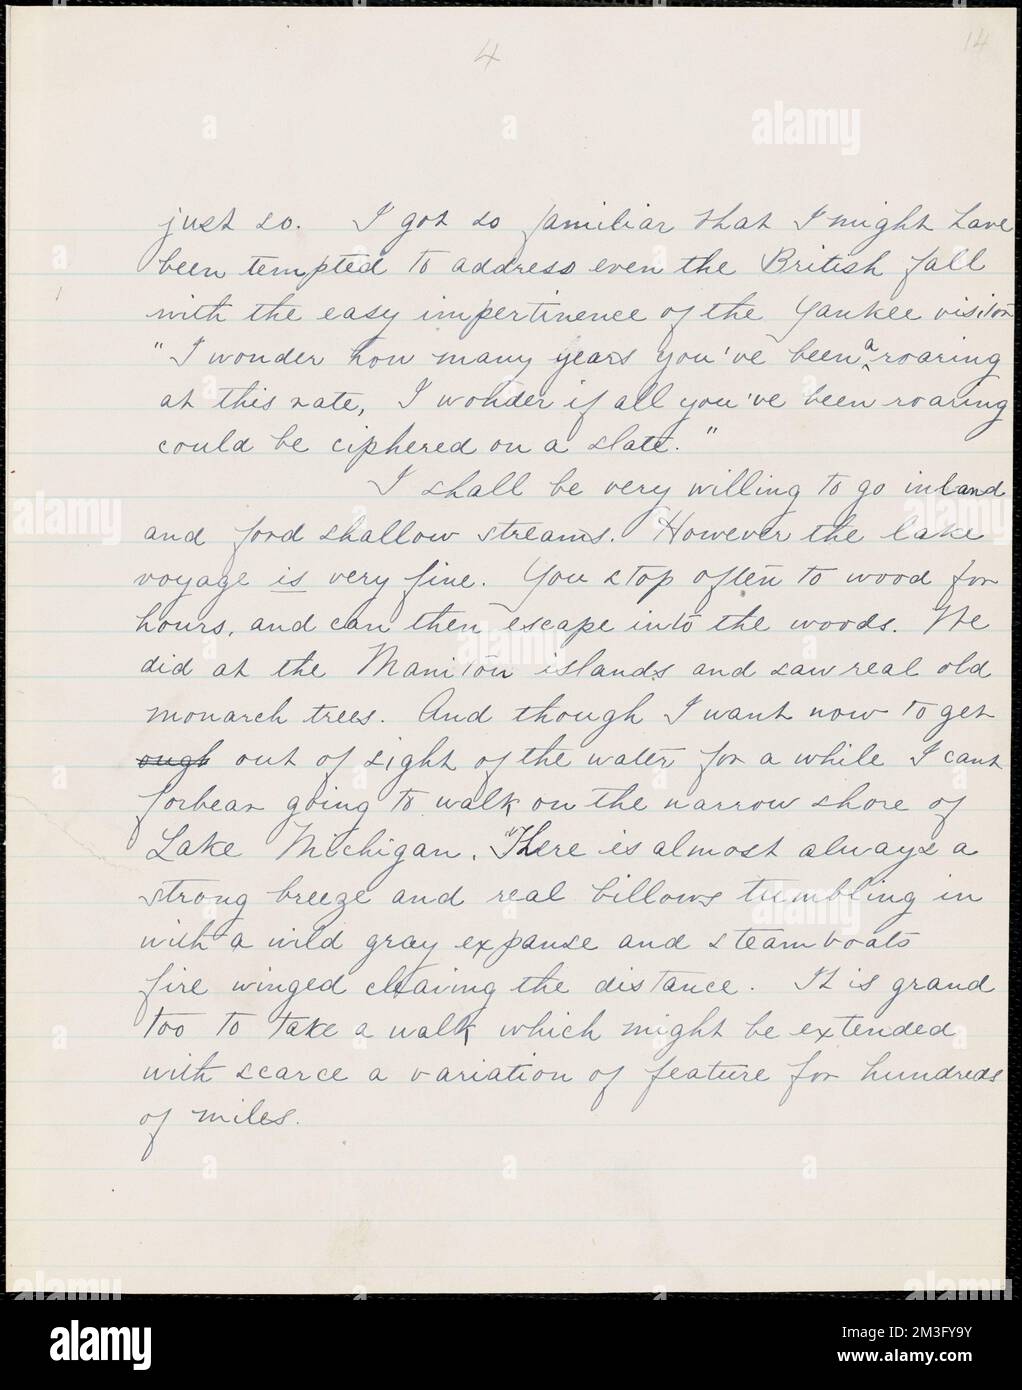 4
14
just so. I got so familiar that I might have
been tempted to address even the British fall
with the easy impertinence of the Yankee visitor
"I wonder how many years you've been a roaring
at this rate, I wonder if all you've been roaring
could be ciphered on a slate."
I shall be very willing to go inland
and ford shallow streams. However the lake
voyage is very fine. You stop often to wood for
hours, and can then escape into the woods. We
did at the Maniton islands and saw real old
monarch trees. And though I want now to get
ough out of sight of the water for a while I cant
forbear going to walk on the narrow shore of
Lake Michigan. "There is almost always a
strong breeze and real billows tumbling in
with a wild gray expanse and steamboats
fire winged cleaving the distance. It is grand
too to take a walk which might be extended
with scarce a variation of feature for hundreds
of miles.
alamy
Image ID: 2M3FY9Y
www.alamy.com